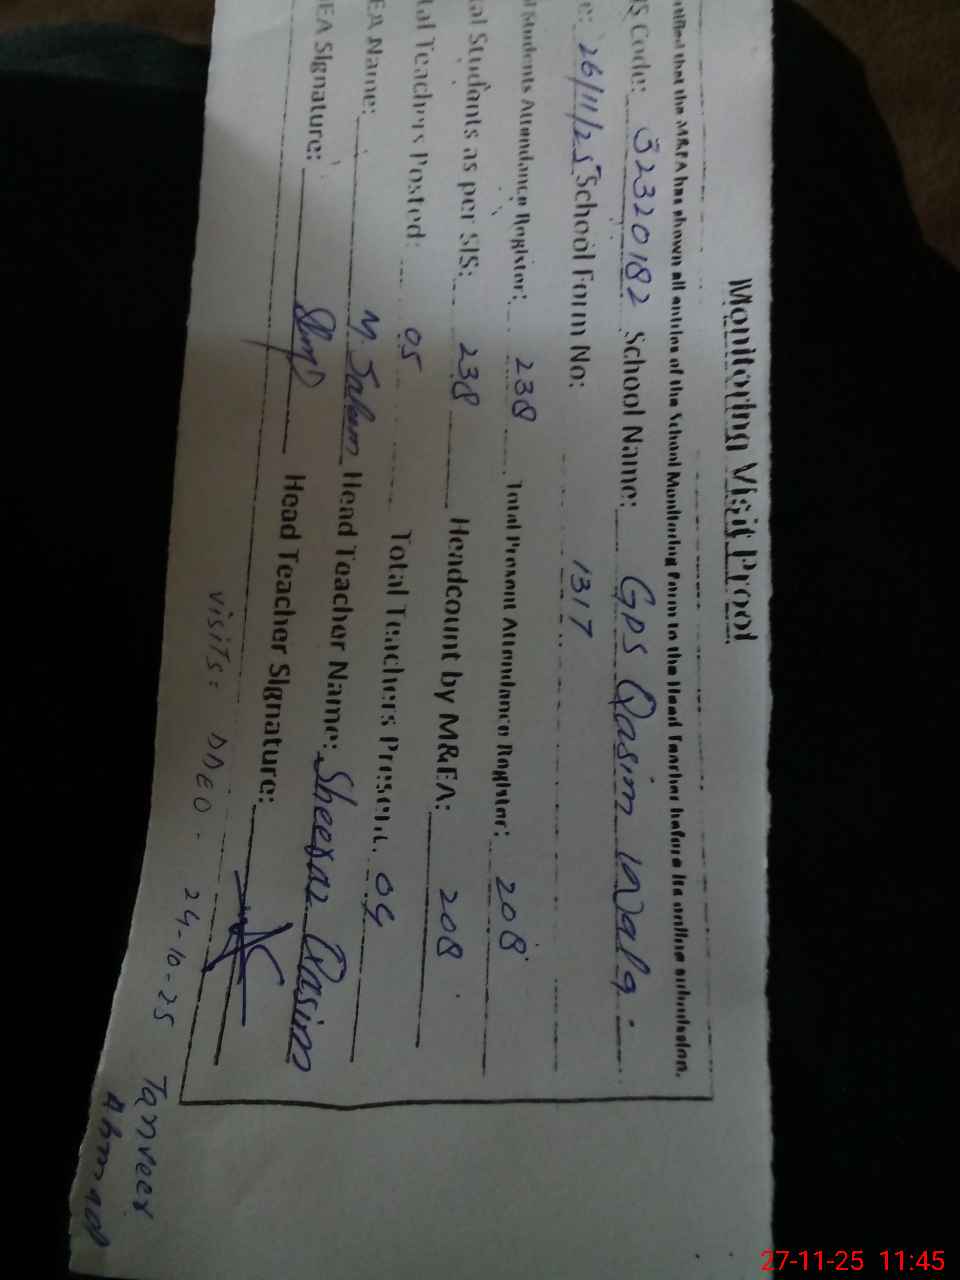 Monitoring Visit Proof
that the M&EA has shown all entries of the School Monitoring Form to the Head Teacher before its online submission.
IS Code: 32320182 School Name: GPS Qasim Wala
e: 26/11/25 School Form No: 1317
l Students Attendance Register: 238 Total Present Attendance Register: 208
al Students as per SIS: 238 Headcount by M&EA: 208
tal Teachers Posted: 05 Total Teachers Present: 04
EA Name: M. Salum Head Teacher Name: Sheeraz Qasim
EA Signature: Head Teacher Signature:
visits: DDEO. 24-10-25 Tanveer
Ahmad
27-11-25 11:45